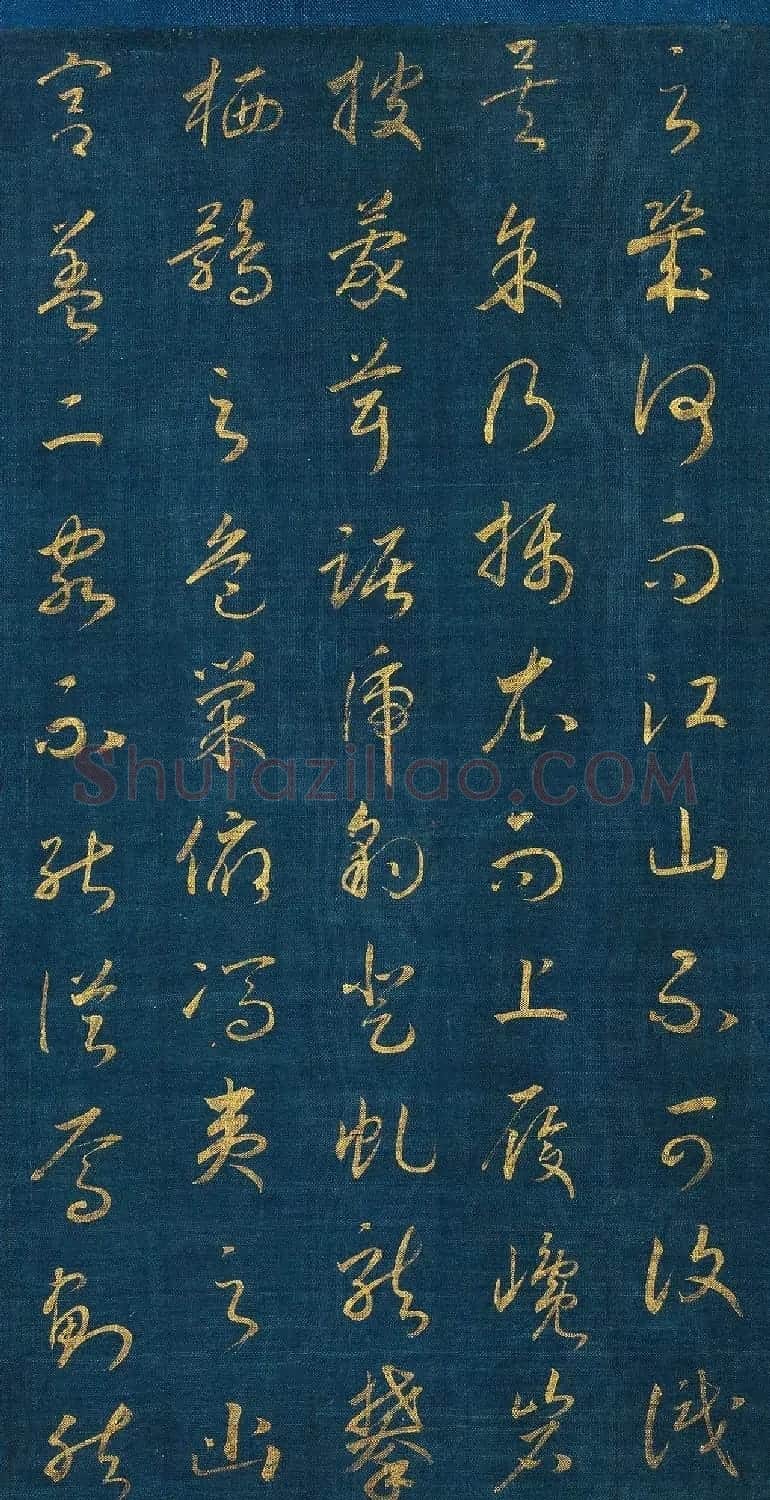 之幾何而江山不可復識
矣余乃攝衣而上履巉岩
披蒙茸踞虎豹登虬龍攀
栖鶻之危巢俯馮夷之幽
宮蓋二客不能從焉劃然
Shufaziliao.COM